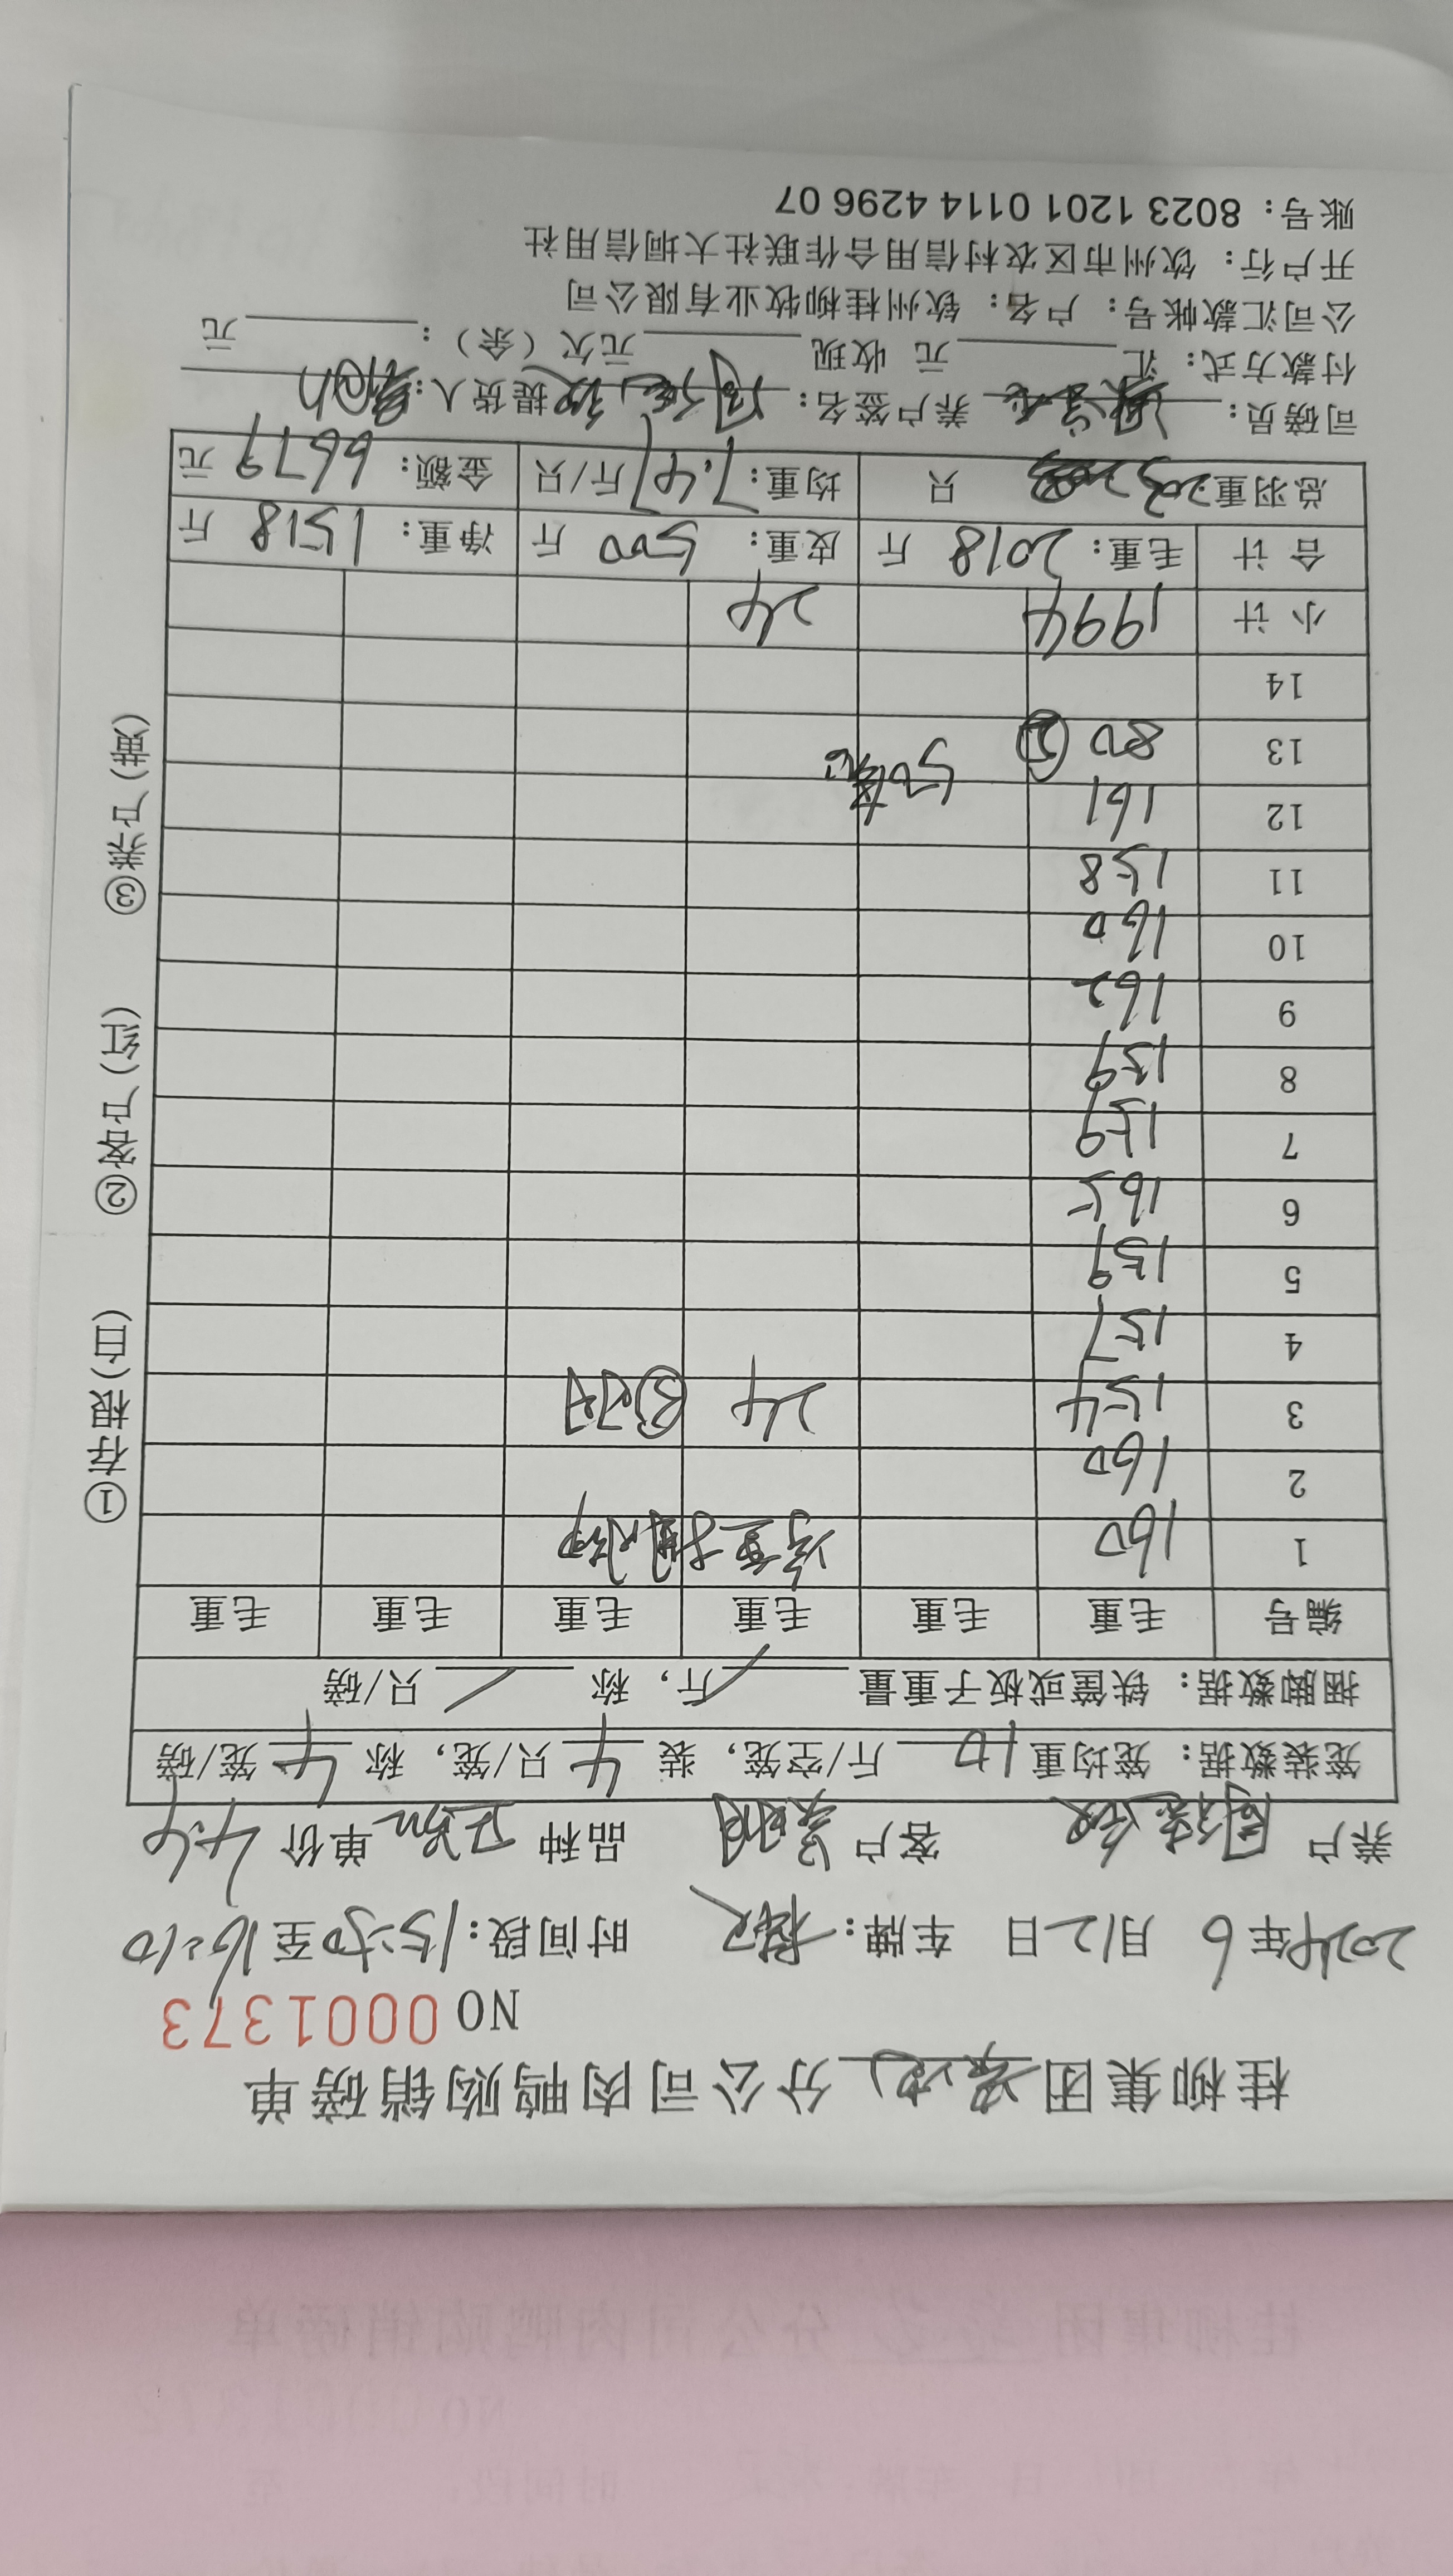 桂柳集团 分公司肉鸭购销磅单
NO 0001373
2024年6月12日 车牌: 时间段:15:30至16:10
养户 客户 品种 单价 4.4
笼装数据: 笼均重 10 斤/空笼, 装 4 只/笼, 称 4 笼/磅
捆脚数据: 铁筐或板子重量 / 斤, 称 / 只/磅
编号 毛重 毛重 毛重 毛重 毛重 毛重
1 160
2 160
3 154 24 ③只
4 157
5 159
6 165
7 159
8 159
9 162
10 160
11 158
12 161
13 80 ② 50笼
14
小计 1994 24
合计 毛重: 2018 斤 皮重: 500 斤 净重: 1518 斤
总羽重 203 只 均重: 7.47 斤/只 金额: 6679 元
司磅员: 养户签名: 提货人:
付款方式: 汇 元 收现 元欠(余): 元
公司汇款帐号: 户名: 钦州桂柳牧业有限公司
开户行: 钦州市区农村信用合作联社大垌信用社
账号: 8023 1201 0114 4296 07
①存根(白) ②客户(红) ③养户(黄)